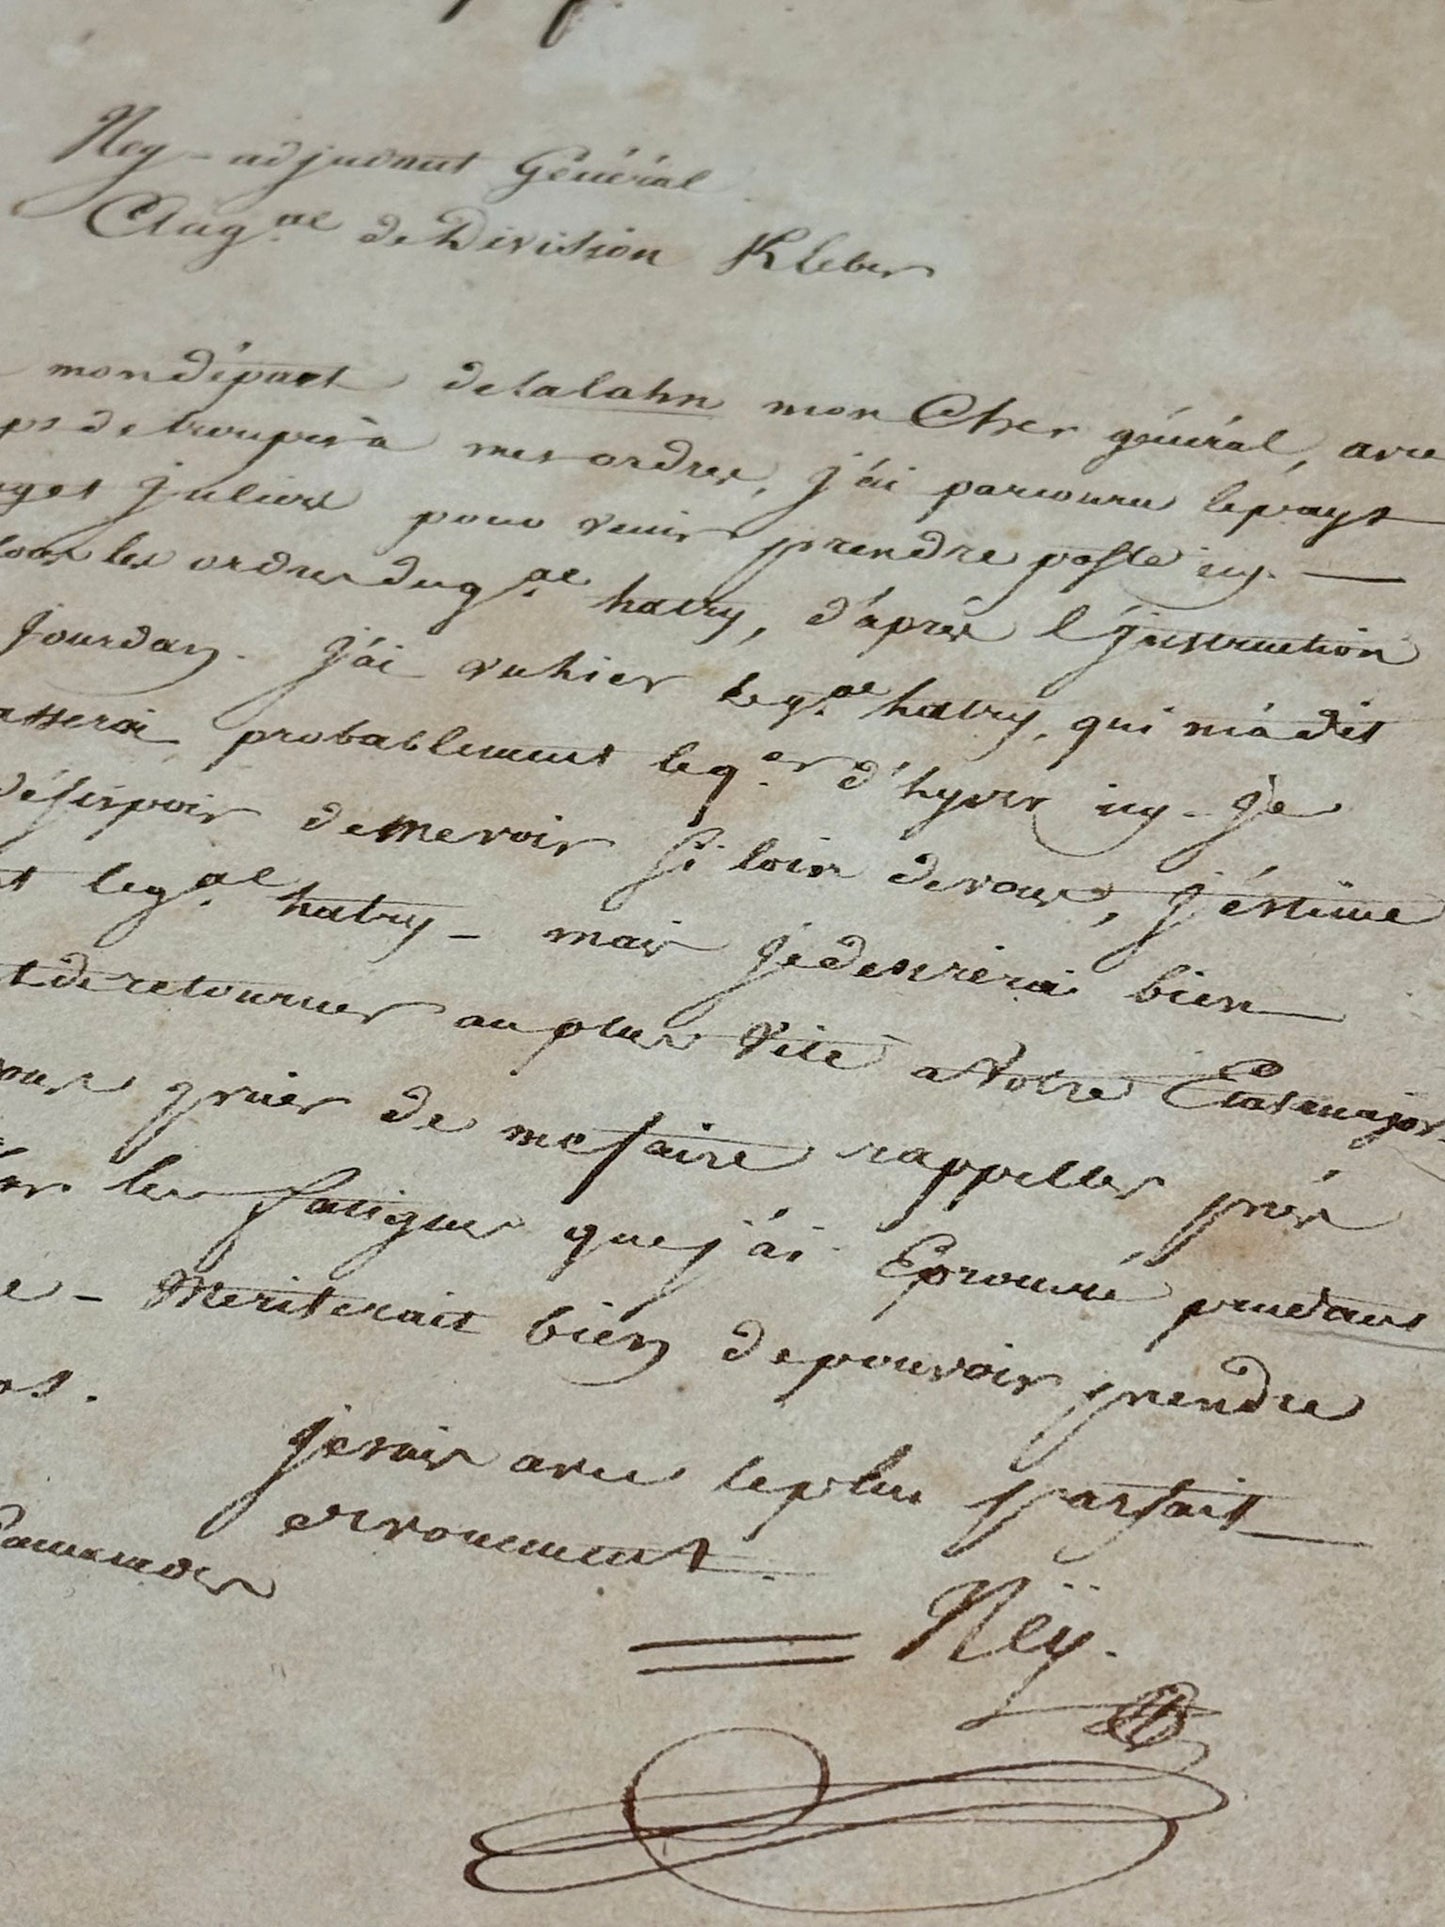 Ney - adjudant Général
Au g.al de Division Kleber
mon départ de la lahn mon Cher général, avec
ps de troupes à mes ordres, j'ai parcouru le pays
juliers pour venir prendre poste icy. —
les ordres du g.al hatry, d'après l'jnstruction
Jourdan. j'ai vu hier le g.al hatry, qui m'a dit
asserai probablement le q.er d'hyver icy. Je
désespoir de me voir si loin de vous, j'éstime
t le g.al hatry - mais je desirerai bien
t de retourner au plus vite a Votre Etat major.
vous prier de me faire rappeller prés
les fatigues que j'ai Eprouvé pendant
e - Meriterait bien de pouvoir prendre
os.
je suis avec le plus parfait
devouement.
Neÿ.